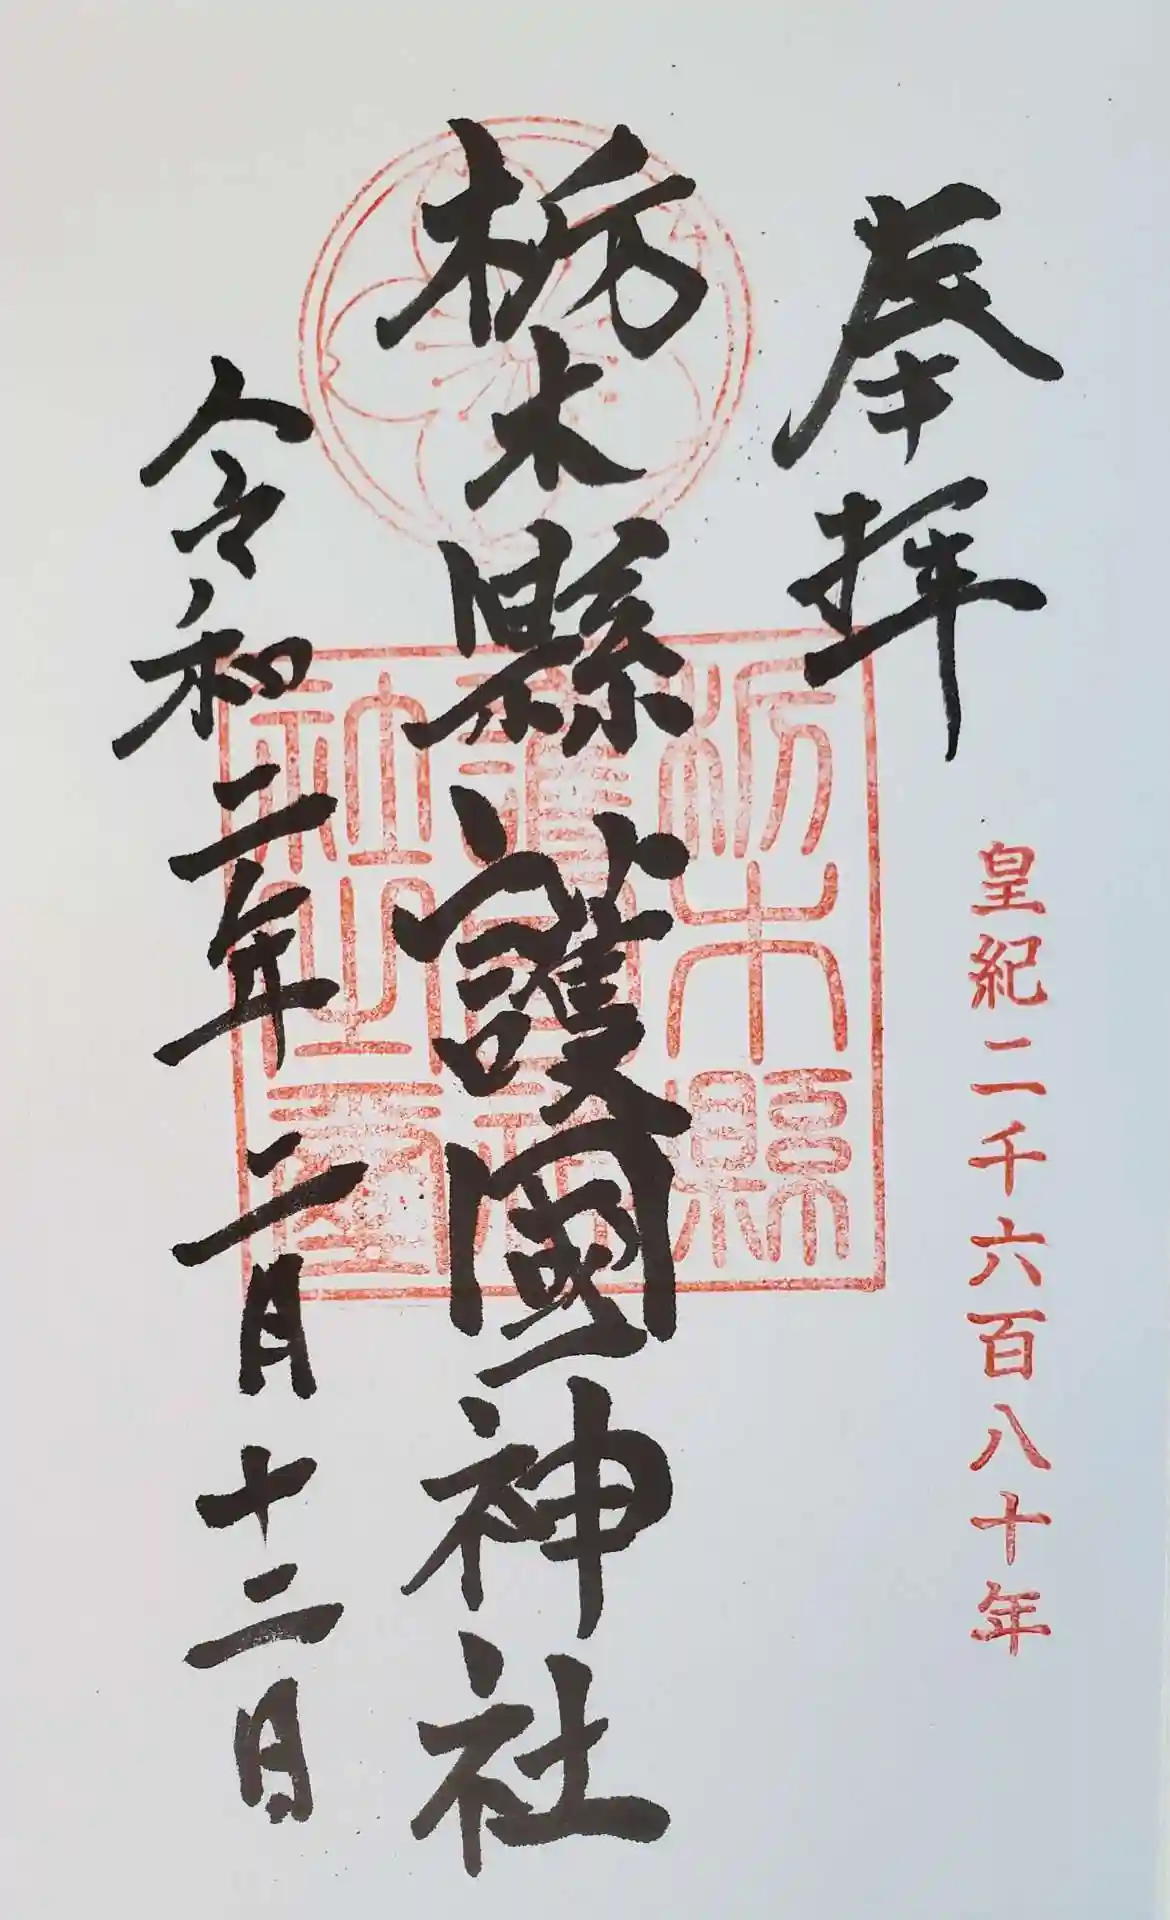 奉拝
皇紀二千六百八十年
栃木縣護國神社
栃木縣
護國神
社之璽
令和二年二月十二日